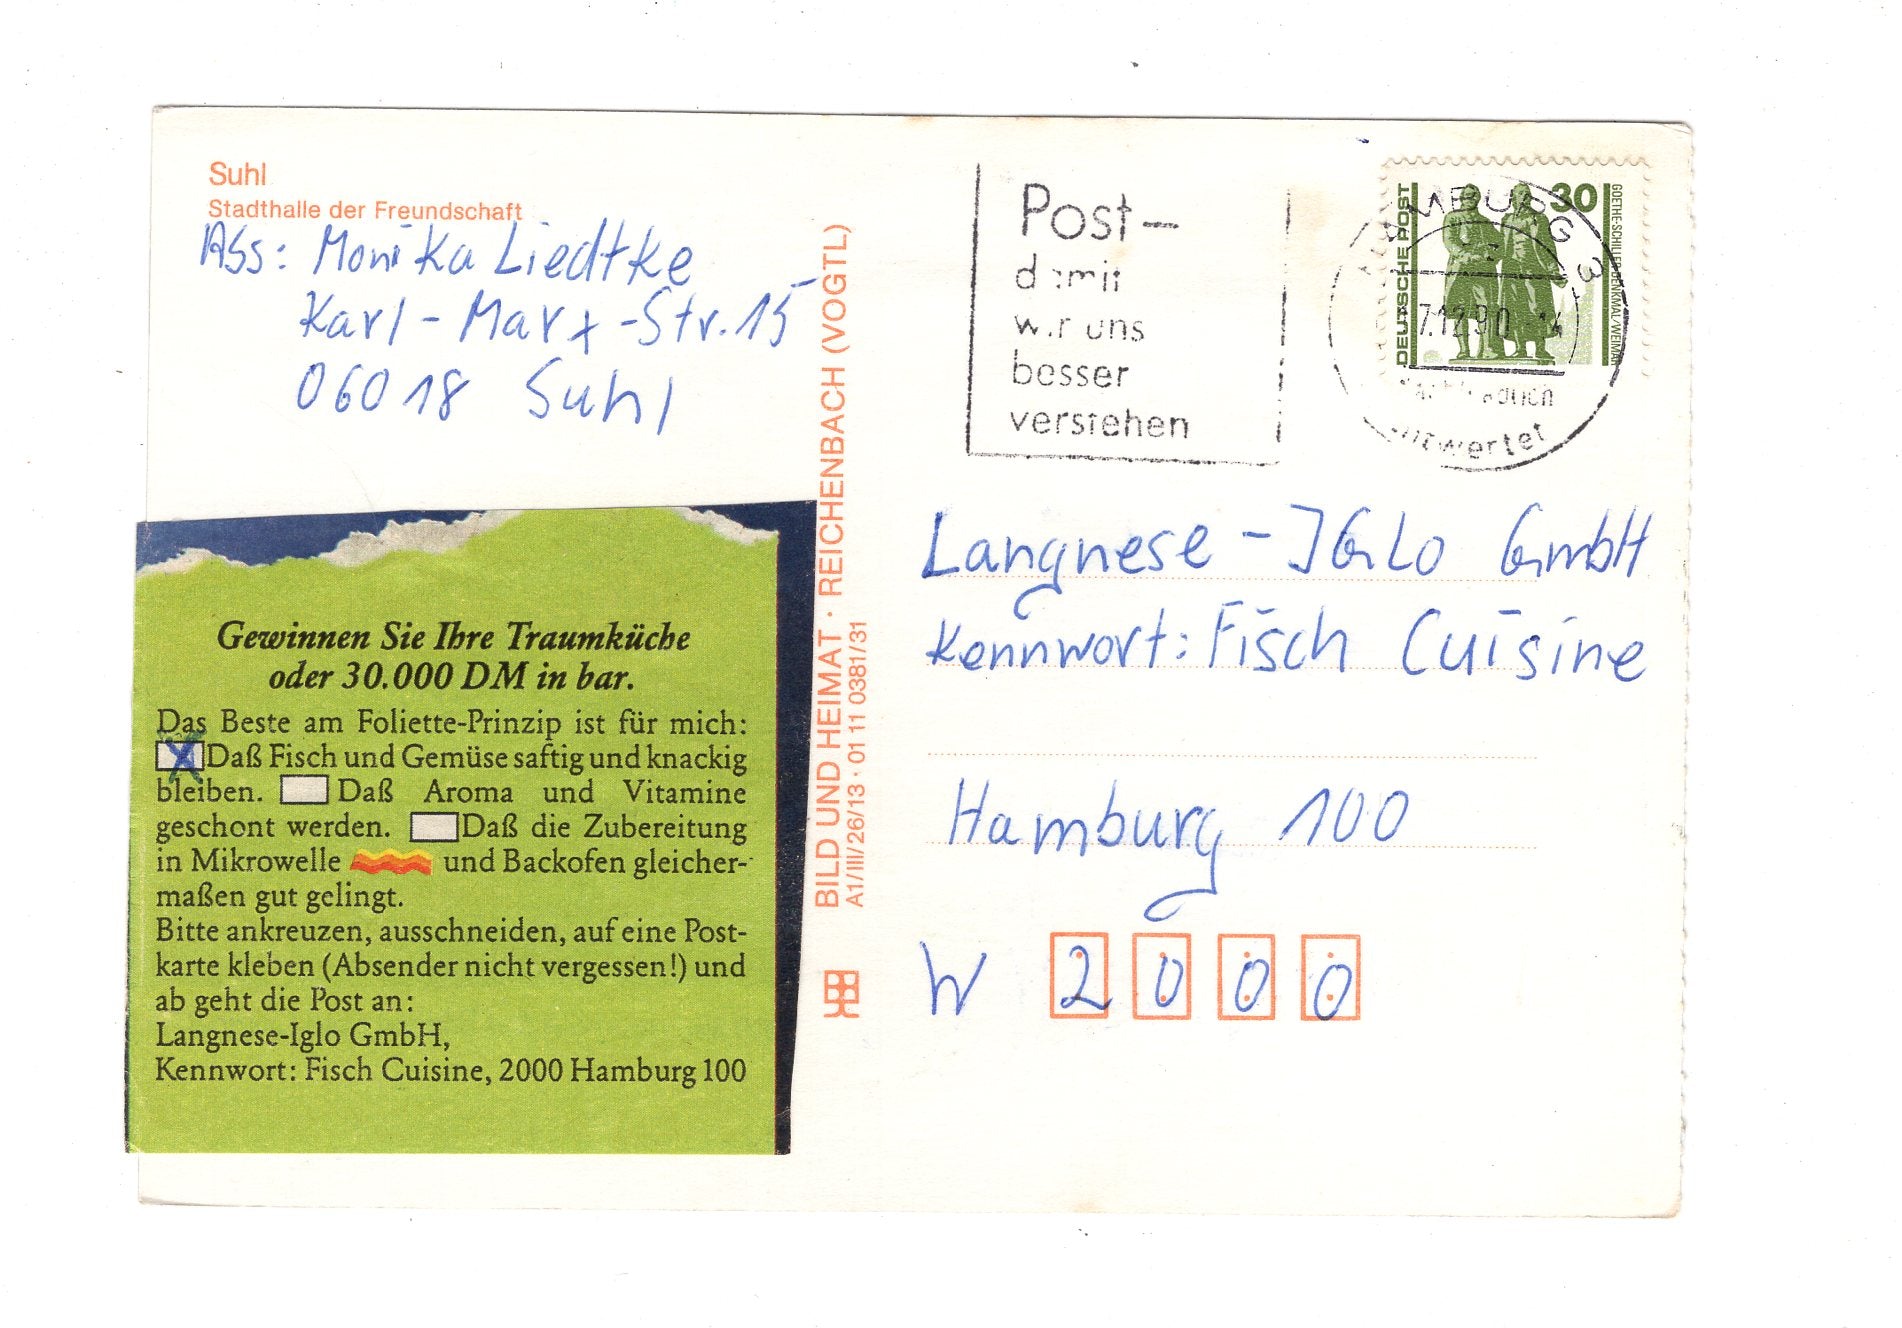 Suhl
Stadthalle der Freundschaft
Ass: Monika Liedtke
Karl-Marx-Str. 15
06018 Suhl
Gewinnen Sie Ihre Traumküche
oder 30.000 DM in bar.
Das Beste am Foliette-Prinzip ist für mich:
X Daß Fisch und Gemüse saftig und knackig
bleiben. Daß Aroma und Vitamine
geschont werden. Daß die Zubereitung
in Mikrowelle und Backofen gleicher-
maßen gut gelingt.
Bitte ankreuzen, ausschneiden, auf eine Post-
karte kleben (Absender nicht vergessen!) und
ab geht die Post an:
Langnese-Iglo GmbH,
Kennwort: Fisch Cuisine, 2000 Hamburg 100
BILD UND HEIMAT · REICHENBACH (VOGTL)
A1/III/26/13 · 01 11 0381/31
Post –
damit
wir uns
besser
verstehen
DEUTSCHE POST
30
GOETHE-SCHILLER-DENKMAL/WEIMAR
HAMBURG 3
7.12.90 14
entwertet
Langnese - IGLo GmbH
Kennwort: Fisch Cuisine
Hamburg 100
W 2000